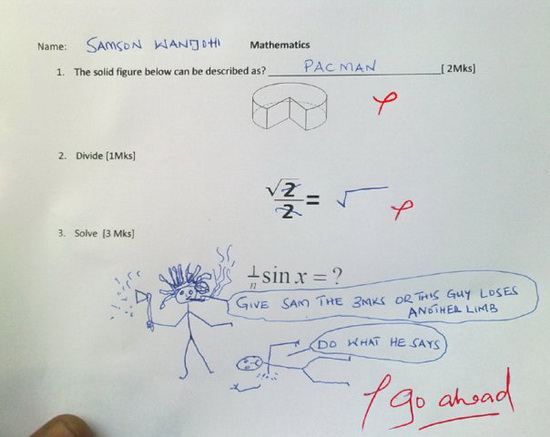 Name: SAMSON WANJOHI Mathematics
1. The solid figure below can be described as? PACMAN [2Mks]
2. Divide [1Mks]
√2/2 = √
3. Solve [3 Mks]
1/n sin x = ?
GIVE SAM THE 3MKS OR THIS GUY LOSES
ANOTHER LIMB
DO WHAT HE SAYS
go ahead